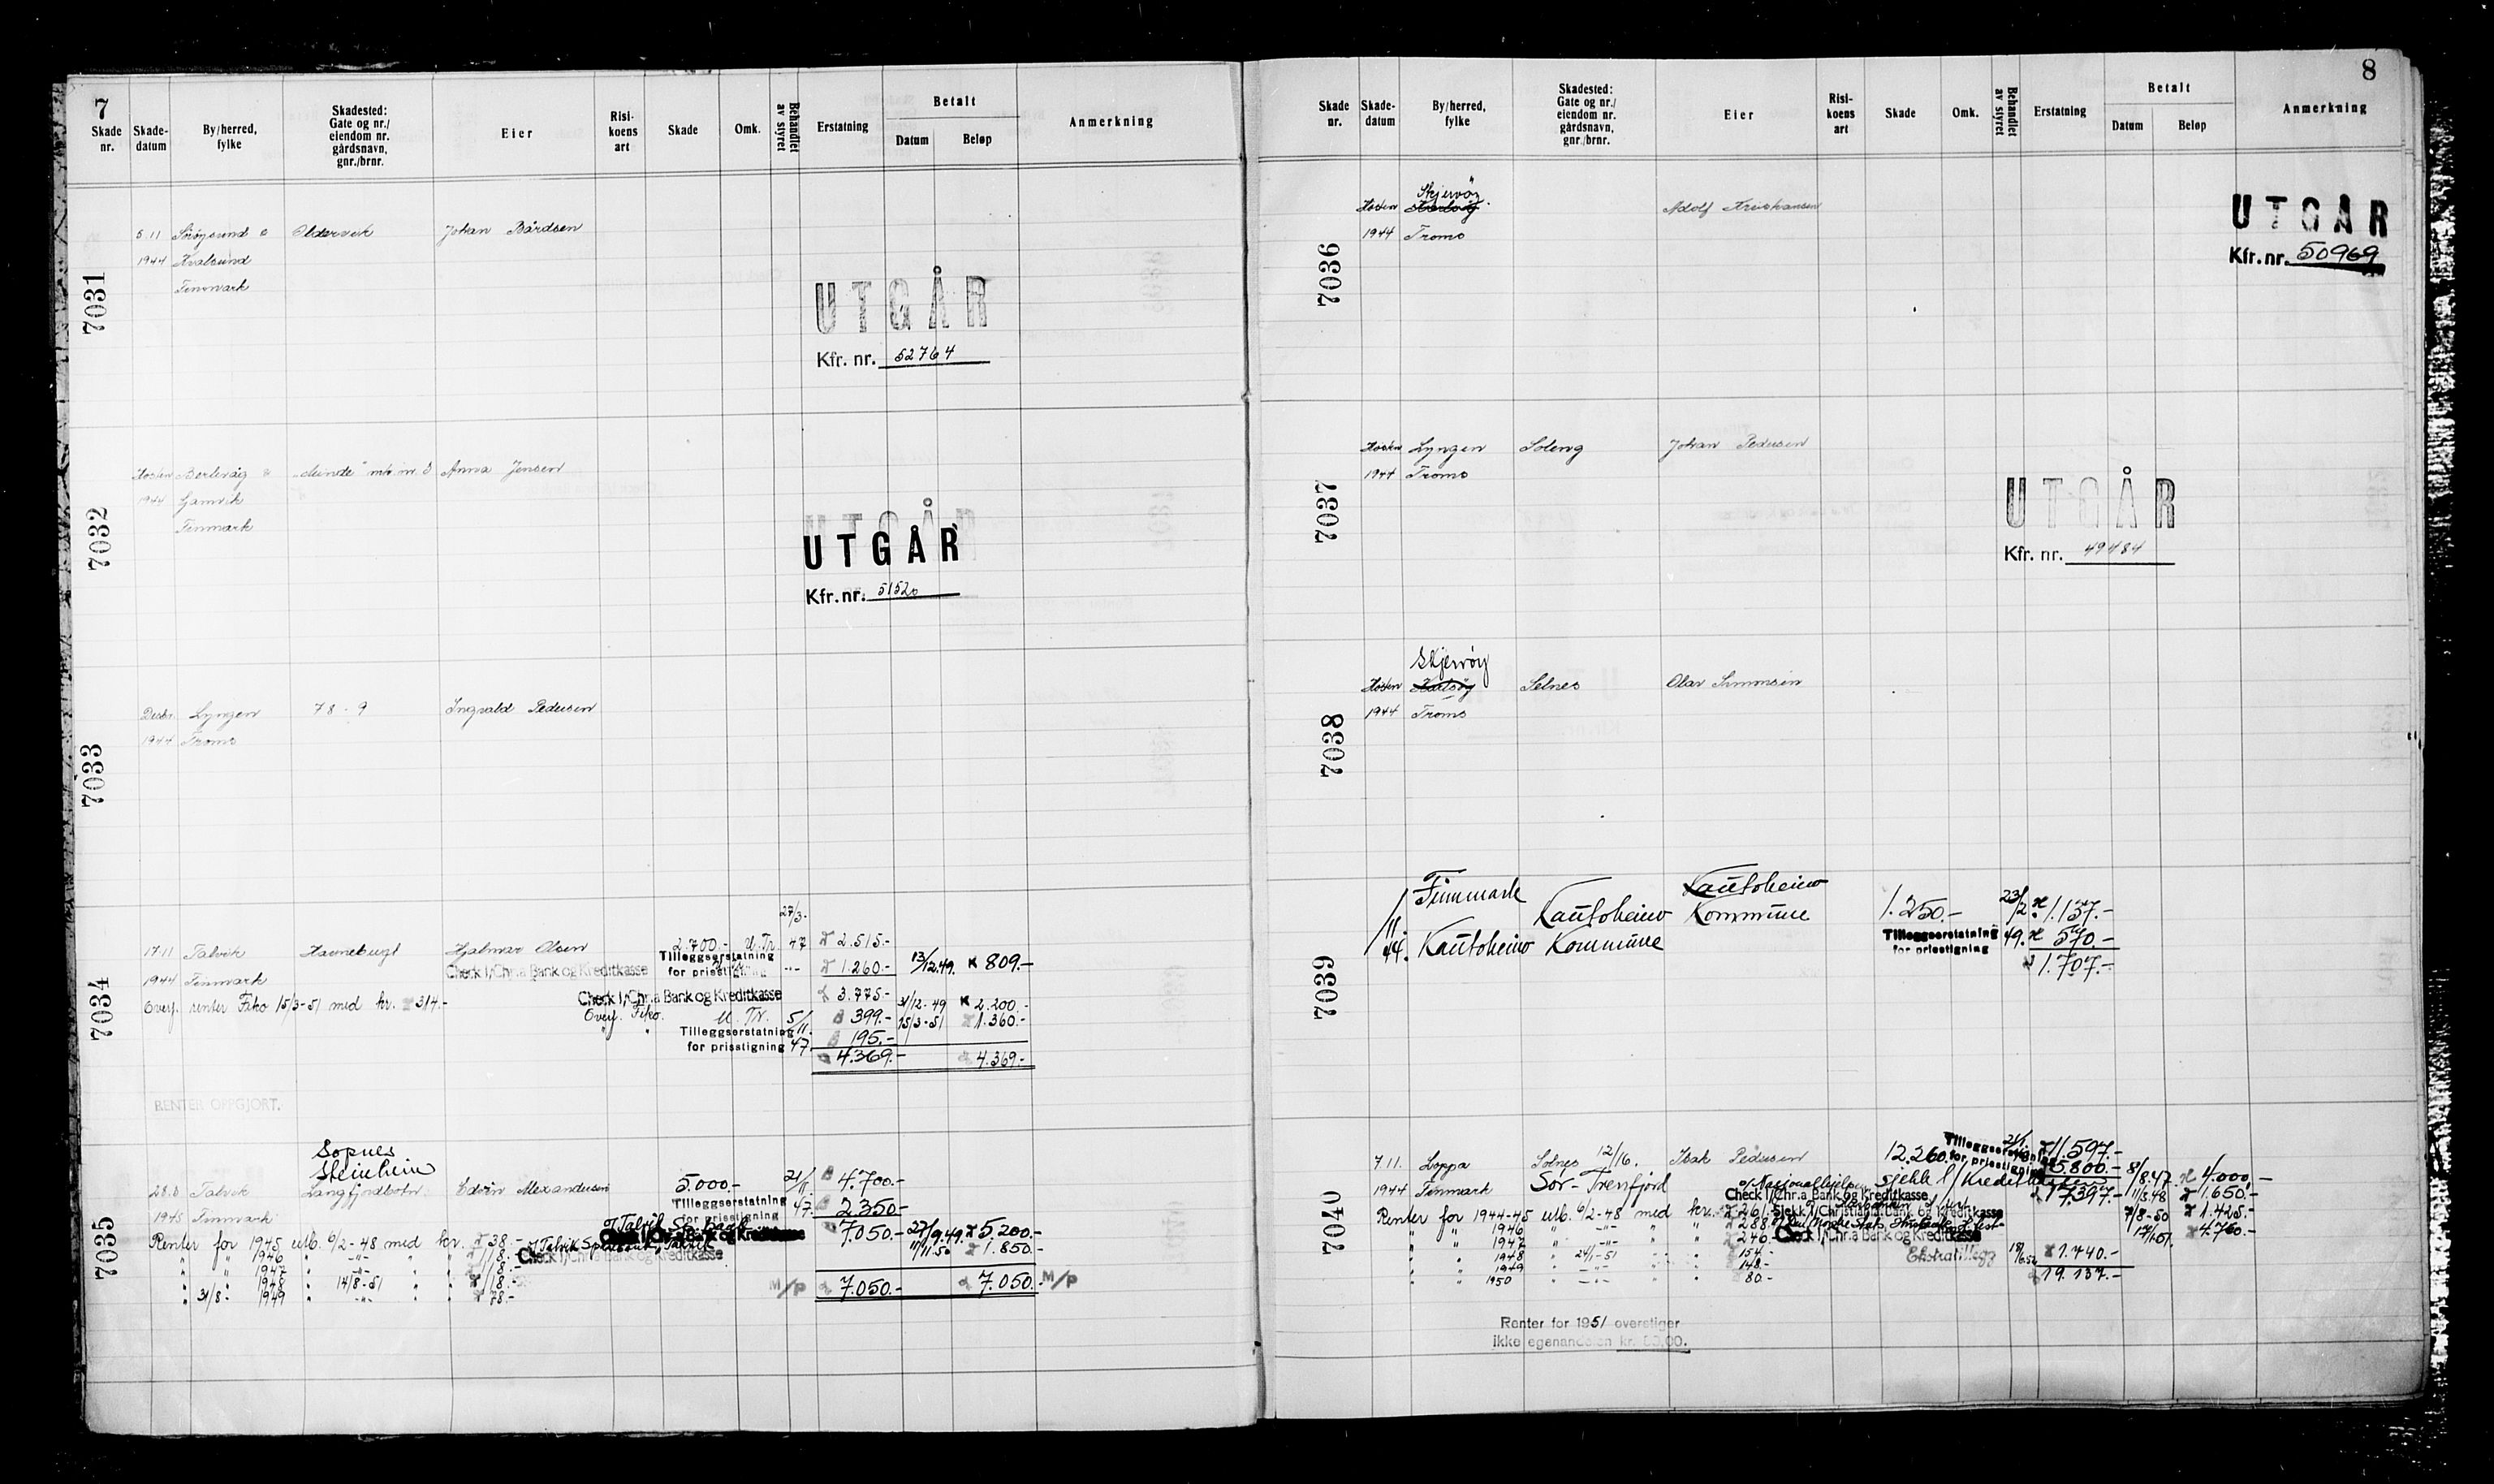 7
Skade nr.
Skade-datum
By/herred, fylke
Skadested: Gate og nr./ eiendom nr. gårdsnavn, gnr./brnr.
Eier
Risi-koens art
Skade
Omk.
Behandlet av styret
Erstatning
Betalt
Datum
Beløp
Anmerkning
7031
5.11 Sörøysund & Oldervik Johan Bårdsen
1944 Kvalsund
Finnmark
UTGÅR
Kfr. nr. 52764
7032
Hösten Berlevåg & mb. nr. 3 Anna Jensen
1944 Gamvik
Finmark
UTGÅR
UTGÅR
Kfr. nr. 51520
7033
Desbr. Lyngen 78 - 9 Ingvald Pedersen
1944 Troms
7034
27/3-
17.11 Talvik Hjalmar Olsen 2.700.- U.Tr. 47 2.515.-
Tilleggserstatning for prisstigning -"- 1.260.- 13/12.49. K 809.-
Check l/Chr.a Bank og Kreditkasse
1944 Finmark
Check l/Chr.a Bank og Kreditkasse 3.775.- 31/12-49 K 2.200.-
Overf. renter Fiko 15/3-51 med kr. 314.-
Overf. Fiko. U. Tr. 5/11. 399.- 15/3-51 1.360.-
Tilleggserstatning for prisstigning 47 195.-
4.369.- 4.369.-
RENTER OPPGJORT.
7035
Sopnes
Steinheim
28.8 Talvik Langfjordbotn. Edvin Alexandersen 5.000.- 21/11. 4.700.-
1945 Finmark Tilleggserstatning for prisstigning 47. 2.350.-
7.050.- 27/9.49. 5.200.-
Renter for 1945 utb. 6/2-48 med kr. 38.-
Check l/Chr.a Bank og Kreditkasse 11/11.50 1.850.-
" " 1946 " -"- " " 118.-
" " 1947 " -"- " " 118.-
" " 1948 " 14/8-51 " " 118.-
" 31/8 " 1949 " -"- " " 78.-
M/P 7.050.- 7.050.- M/P
8
Skade nr.
Skade-datum
By/herred, fylke
Skadested: Gate og nr./ eiendom nr. gårdsnavn, gnr./brnr.
Eier
Risi-koens art
Skade
Omk.
Behandlet av styret
Erstatning
Betalt
Datum
Beløp
Anmerkning
7036
Skjervöy
Hösten Karlsöy Adolf Kristiansen
1944 Troms
UTGÅR
Kfr. nr. 50969
7037
Hösten Lyngen Soleng Johan Pedersen
1944 Troms
UTGÅR
Kfr. nr. 49484
7038
Skjervöy
Hösten Karlsöy Selnes Olav Simonsen
1944 Troms
7039
1/11. 44. Finnmark Kautokeino Kautokeino Kommune 1.250.- 23/2 1.137.-
Kautokeino Kommune Tilleggserstatning for prisstigning 49. 570.-
1.707.-
7040
7.11. Loppa Solnes 12/16. Isak Pedersen 12.260.- 21/1. 11.597.-
Tilleggserstatning for prisstigning 5.800.- 8/8.47 4.000,-
1944 Finmark Sör-Tverrfjord Sjekk l/Kreditkassen 17.397.- 11/3.48 1.650.-
Check l/Chr.a Bank og Kreditkasse
Renter for 1944-45 utb. 6/2-48 med kr. 261.- Sjekk l/Christiania Bank og Kreditkasse 7/8-50 1.425.-
" " 1946 " -"- " " 288.- 17/1.51. 4.760.-
" " 1947 " -"- " " 246.- Check l/Chr.a Bank og Kreditkasse
" " 1948 " 24/1-51 " " 154.- Ekstratillegg 1.740.-
" " 1949 " -"- " " 148.- 19.137.-
" " 1950 " -"- " " 80.-
Renter for 1951 overstiger
ikke egenandelen kr. 50,00.